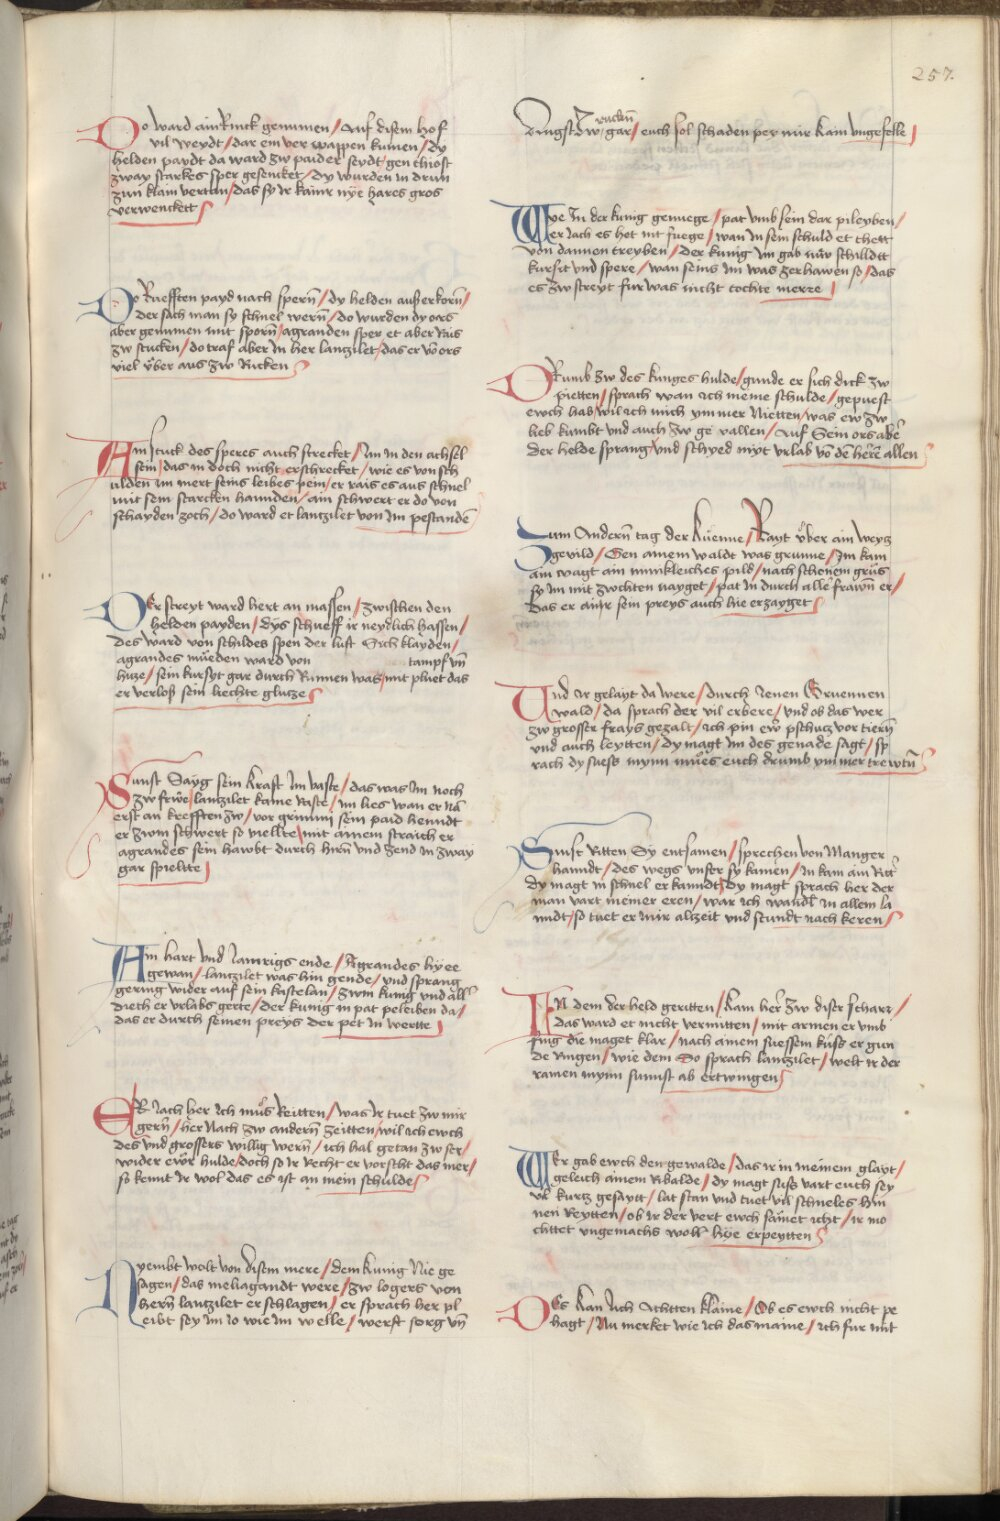 257.
Do ward ain Rinck genumen / Auf disem hof
vil weydt / dar ein ver wappen kumen / dy
helden paydt da ward zw paider seydt / gen thiost
zway starckes sper gesencket / dy wurden in drum
zun klain vertan / das sy Ir kainr nye hares gros
verwenckett /
Do Ruefften payd nach spern̄ / dy helden außerkorn̄ /
der sach man sy schnel wern̄ / do wurden dy ors
aber genumen mit sporn̄ / agranden sper et aber Rais
zw stucken / do traf aber In her lantzilet / das er vō ors
viel vber aus zw Rucken /
Ain stuck des speres auch strecket / Im In den achsel
sein / das in doch nicht erschrecket / wie es von sch
ulden im mert seins leibes pein / er rais es aus schnel
mit sein starcken hannden / ain schwert er do von
schayden zoch / do ward et lantzilet von Im pestandē
Der streyt ward hert an massen / zwischen den
helden payden / dys schueff ir neydlich hassen /
des ward von schildes spen der luft Sich klayden /
agrandes mueden ward von tampf vn̄
hicze / sein kursyt gar durch Runnen was / mit pluet das
er verloß sein liechte glincze /
Sunst Sayg sein kraft Im vaste / das was Im noch
zw frwe / lantzilet kaine Raste / im lies wan er nā
erst an krefften zw / vor grimmi sein paid henndt
er zwm schwert so viellte / mit ainem straich er
agrandes sein hawbt durch hirn̄ vnd zend In zway
gar spieltte /
Ain hart vnd Iamrigs ende / Agrandes hyee
gewan / lantzilet was hin gende / vnd sprang
gering wider auf sein kastelan / zwm kunig vnd all
dieth er vrlabs gerte / der kunig in pat peleiben da /
das er durch seinen preys der pet In wertte /
Er Iach her Ich mus Reitten / was Ir tuet zw mir
gern̄ / her Nach zw andern̄ zeitten / wil ich ewch
des vnd grossers willig wern̄ / ich hal getan zw ser /
wider ewr hulde / doch so Ir Recht er vorscht das mer /
so kennt Ir wol das es ist an mein schulde /
Nyembt wolt von disem mere / dem kunig Nie ge
sagen / das meliagandt were / zw logers von
hern̄ lantzilet erschlagen / er sprach her pl
eibt sey im Io wie im welle / werft sorg vn̄
ruckn̄
Angst zw gar / euch sol schaden per mir kain vngefelle /
Wye In der kunig genuege / pat vmb sein dar pileyben /
er Iach es het nit fuege / wan In sein schuld et thett
von dannen treyben / der kunig Im gab new schilldtt
kursit vnd spere / wan seins Im was zerhawen so / das
es zw streyt fur was nicht tochte merre /
Drumb zw des kunges hulde / gunde er sich dick zw
pietten / sprach wan ich meine schulde / gepuest
ewch hab / wil ich mich ymmer Nietten / was ew zw
lieb kumbt vnd auch zw ge vallen / Auf Sein ors aber
der helde sprang / vnd schyed myt vrlab vō dē herē allen
Zum Andern̄ tag der Kuenne / Rayt vber ain weytz
gevild / Gen ainem waldt was grunne / Im kam
ain magt ain mynikleiches pild / nach schonem grus
sy im mit zwchten nayget / pat in durch alle frawn er /
das er ainr sein preys auch hie erzayget /
Und Ir gelayt da were / durch Ienen Gruennen
wald / da sprach der vil erbere / vnd ob das wer
zw grosser frays gezalt / ich pin ewr pschutz vor tiern̄
vnd auch leytten / dy magt im des genade sagt / sp
rach dy suess mynn mues euch drumb ymmer trewtn̄
Sunst Ritten Sy entsamen / sprechen von Manger
hanndt / des wegs vnfer sy kamen / In kam ain Ritr
dy magt in schnel er kanndt / Dy magt sprach her der
man vart meiner eren / war ich wandl in allem la
nndt / so tuet er mir alzeit vnd stundt nach keren /
In dem der held geritten / kam her zw diser scharr /
das ward et nicht vermitten / mit armen er vmb
fing die maget klar / nach ainem suessem kuss er gun
de Ringen / wie dem Do sprach lantzilet / welt ir der
ramen mynn sunnst ab ertwingen /
Wer gab ewch den gewalde / das ir in meinem glayt /
geleich ainem Ribalde / dy magt suss vart euch sey
vil kurtz gesaytt / lat stan vnd tuet vil schneles hin
nen Reytten / ob ir der vert ewch samet icht / ir mo
chttet vngemachs woll hye erpeytten /
Des kan Ich Achtten klaine / Ob es ewch nicht pe
hagt / Nu merket wie ich das maine / ich fur mit